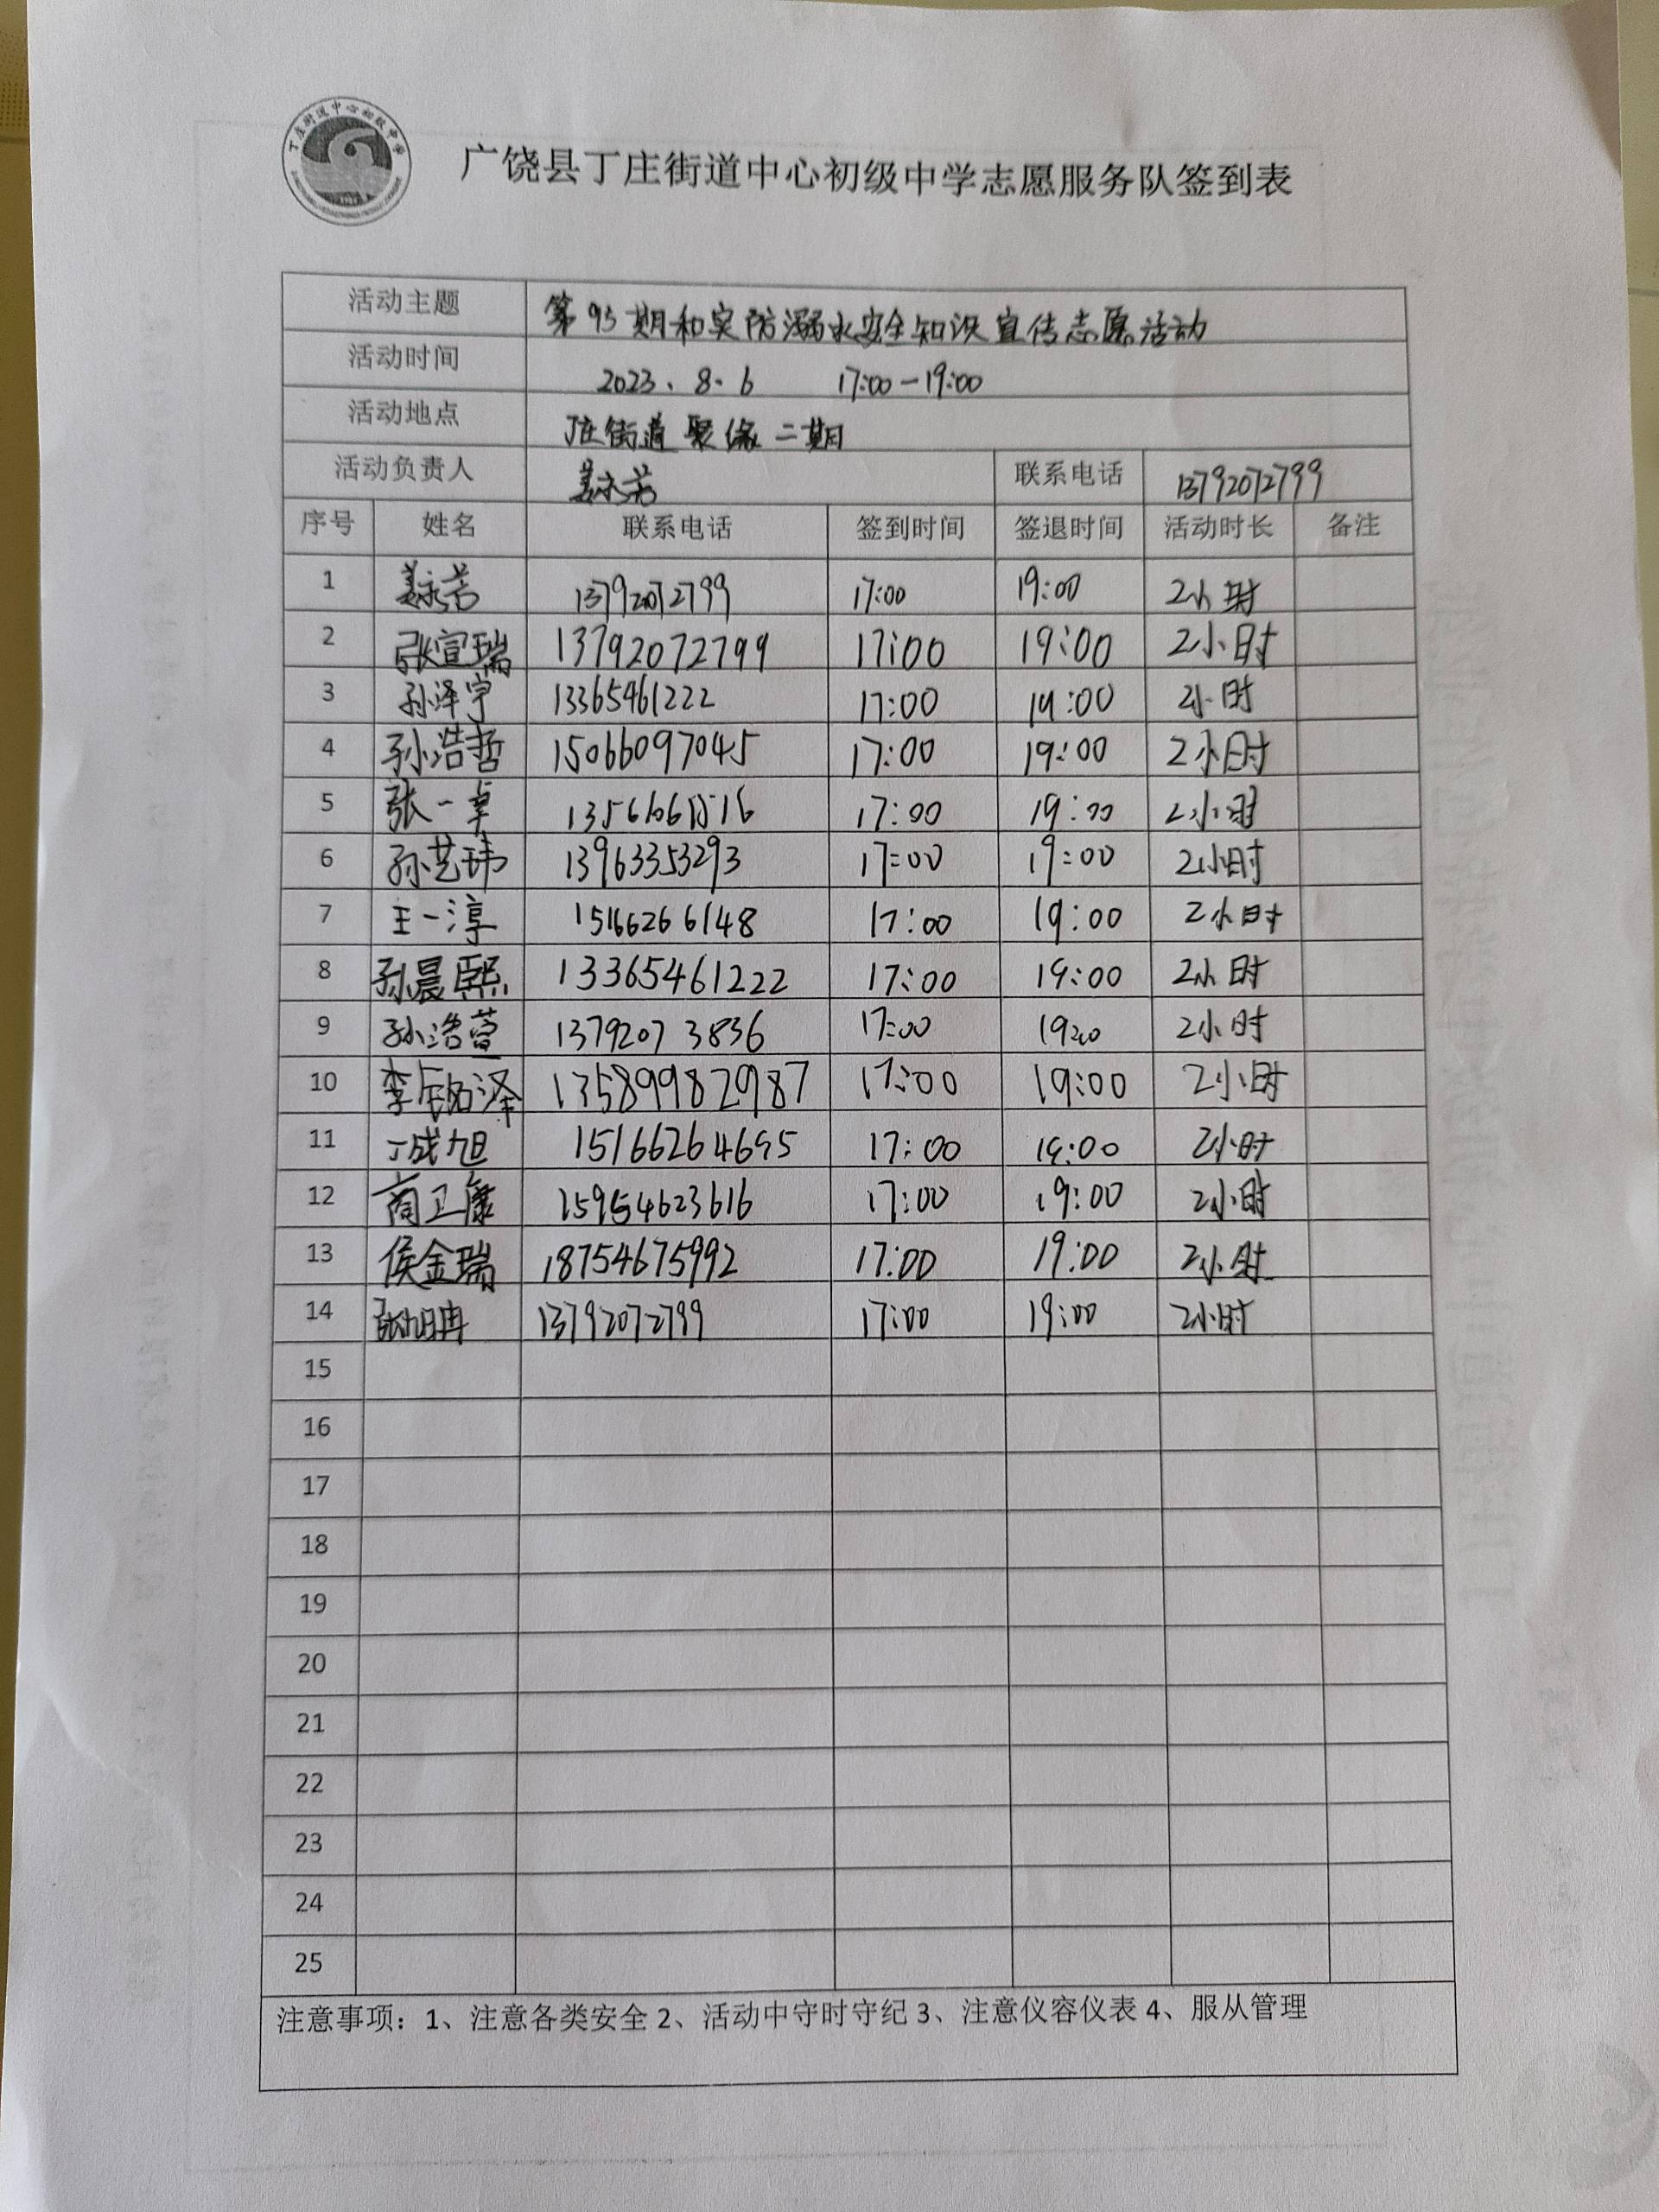 丁庄街道中心初级中学
广饶县丁庄街道中心初级中学志愿服务队签到表
活动主题 第93期和实防溺水安全知识宣传志愿活动
活动时间 2023.8.6 17:00-19:00
活动地点 丁庄街道聚缘二期
活动负责人 姜永芳 联系电话 13792072799
序号 姓名 联系电话 签到时间 签退时间 活动时长 备注
1 姜永芳 13792072799 17:00 19:00 2小时
2 张宣瑞 13792072799 17:00 19:00 2小时
3 孙泽宇 13365461222 17:00 19:00 2小时
4 孙浩哲 15066097045 17:00 19:00 2小时
5 张一卓 17:00 19:00 2小时
6 孙艺玮 13963353293 17:00 19:00 2小时
7 王一淳 15166266148 17:00 19:00 2小时
8 孙晨熙 13365461222 17:00 19:00 2小时
9 孙浩萱 13792073836 17:00 19:00 2小时
10 李铭泽 13589982987 17:00 19:00 2小时
11 丁成旭 15166264695 17:00 19:00 2小时
12 商卫康 15954623616 17:00 19:00 2小时
13 侯金瑞 18754675992 17:00 19:00 2小时
14 13792072799 17:00 19:00 2小时
15
16
17
18
19
20
21
22
23
24
25
注意事项：1、注意各类安全 2、活动中守时守纪 3、注意仪容仪表 4、服从管理